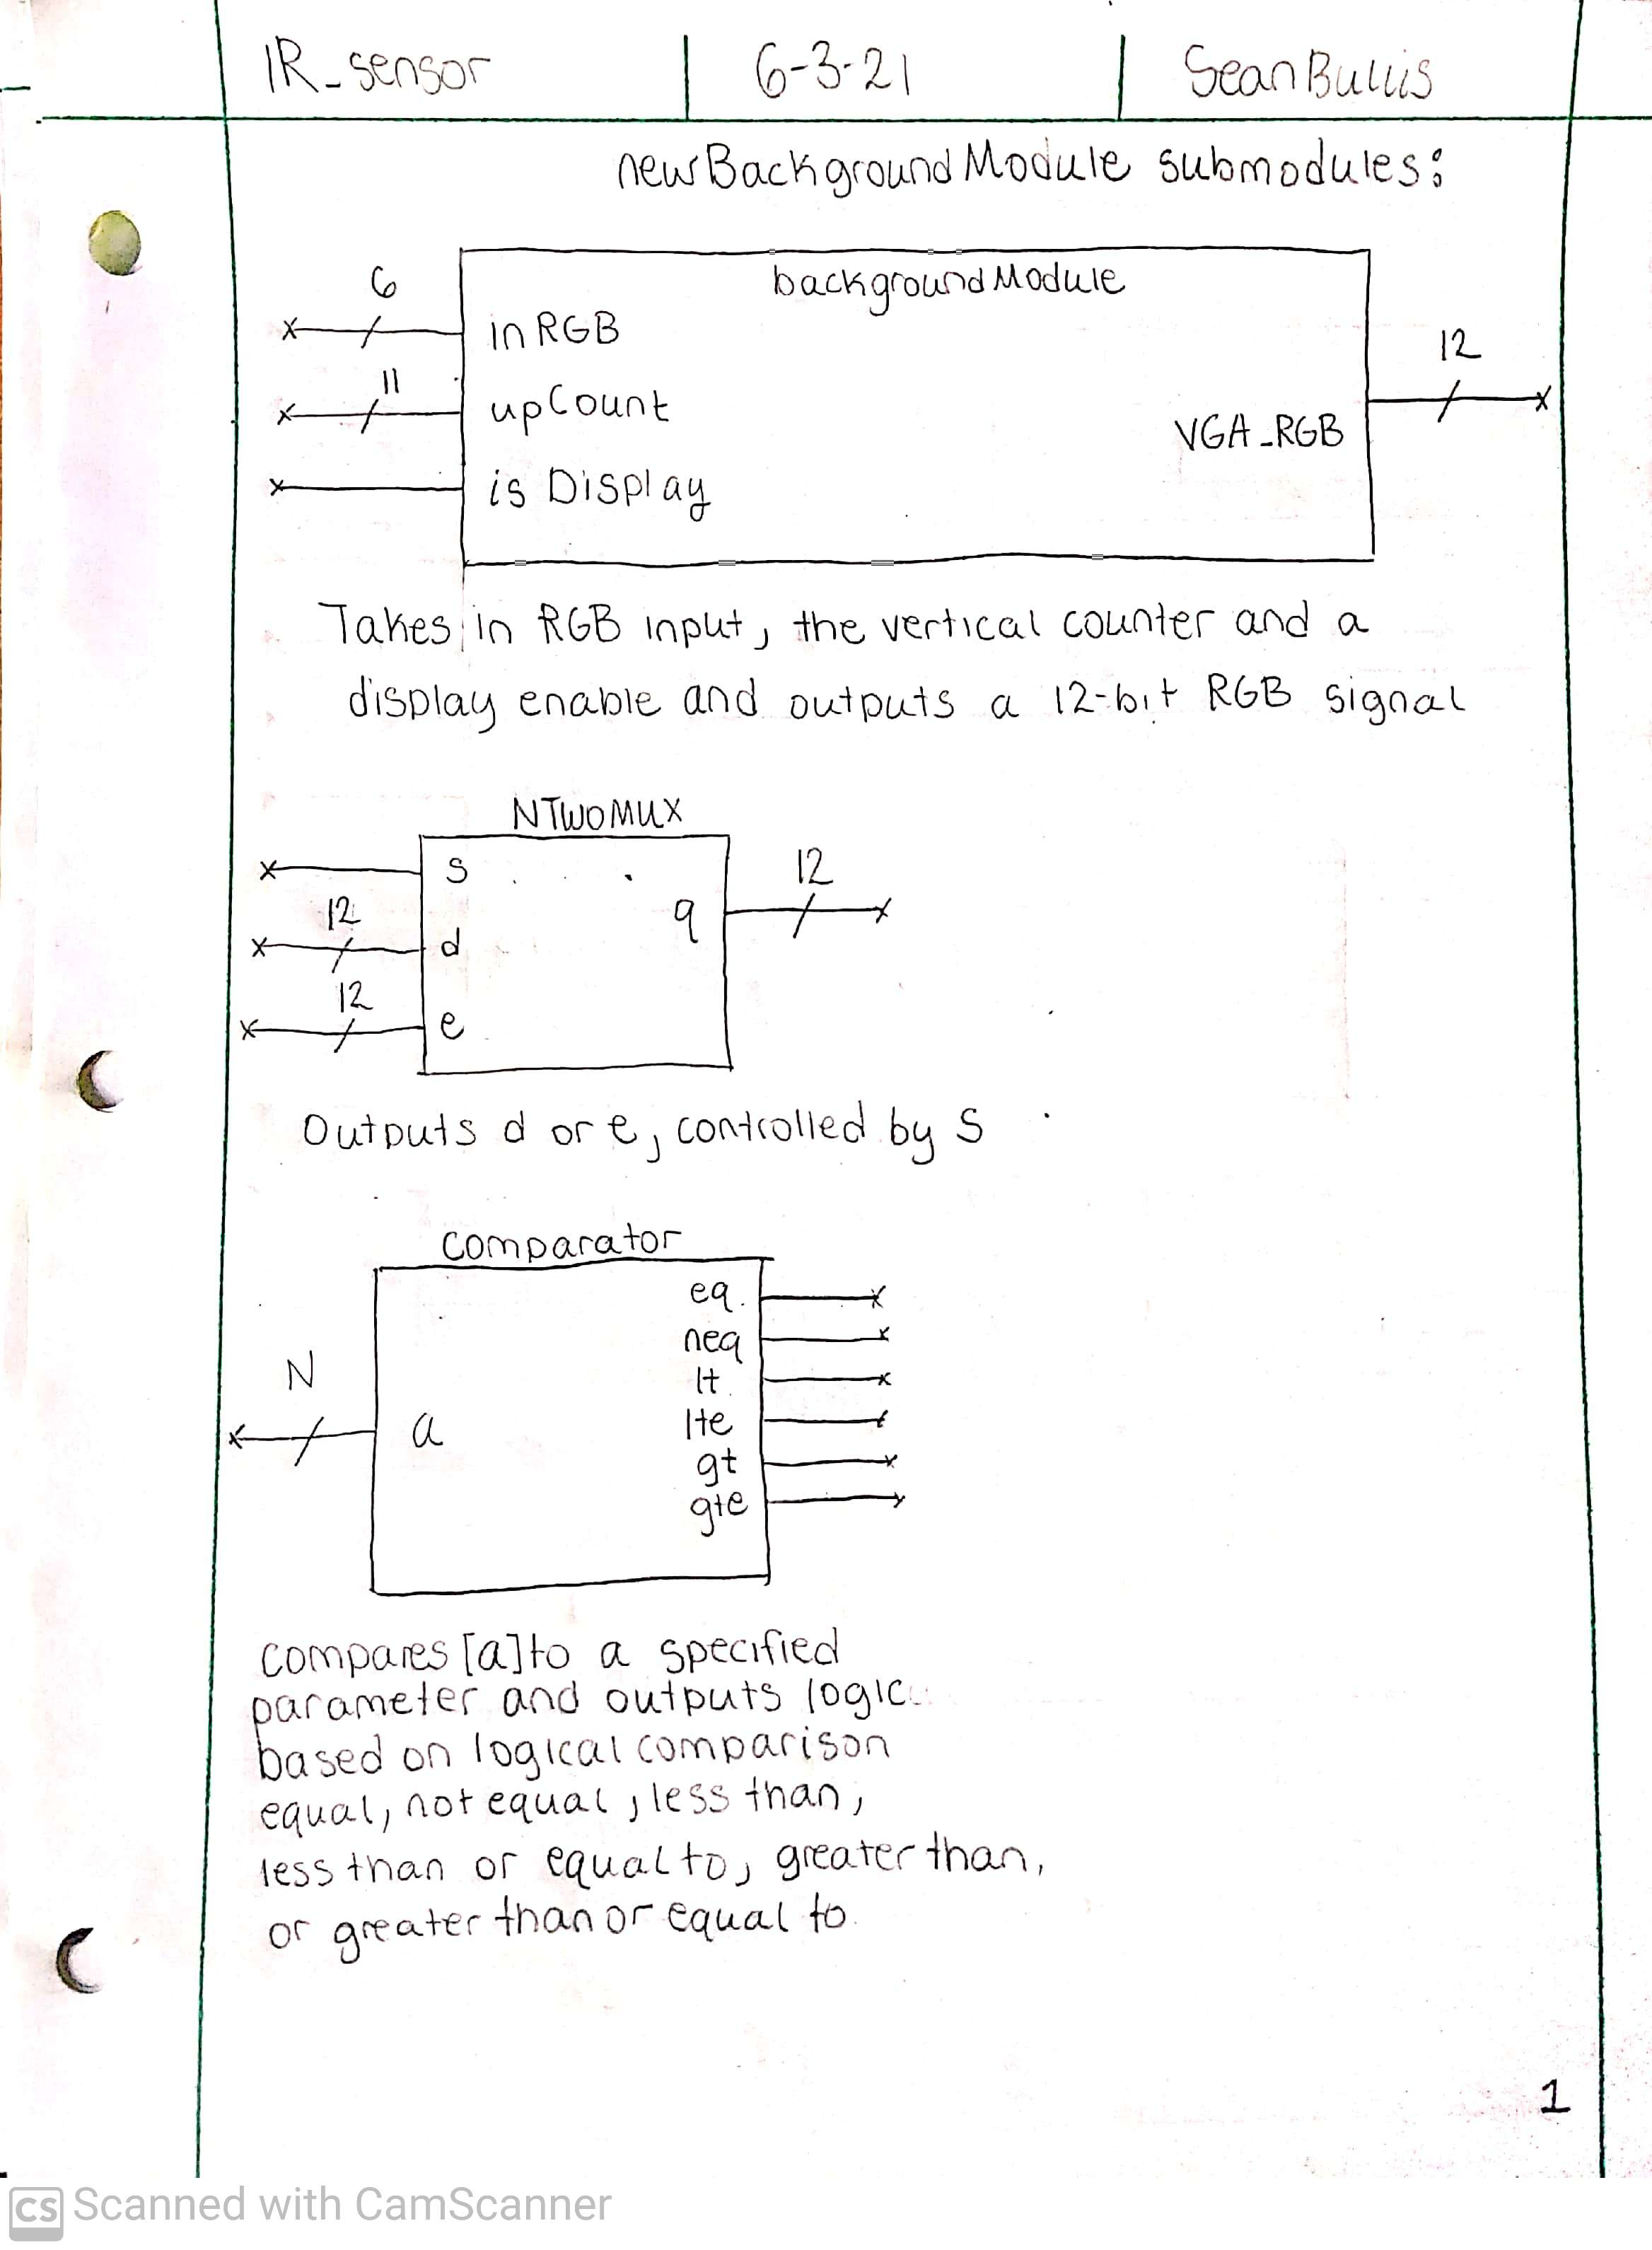 IR_sensor 6-3-21 Sean Bullis
newBackgroundModule submodules:
backgroundModule
6
inRGB
12
11
upCount
VGA_RGB
isDisplay
Takes in RGB input, the vertical counter and a
display enable and outputs a 12-bit RGB signal
NTWOMUX
s
12
12
q
d
12
e
Outputs d or e, controlled by S
comparator
eq
neq
N
lt
lte
a
gt
gte
compares [a] to a specified
parameter and outputs logic
based on logical comparison
equal, not equal, less than,
less than or equal to, greater than,
or greater than or equal to
1
CS Scanned with CamScanner